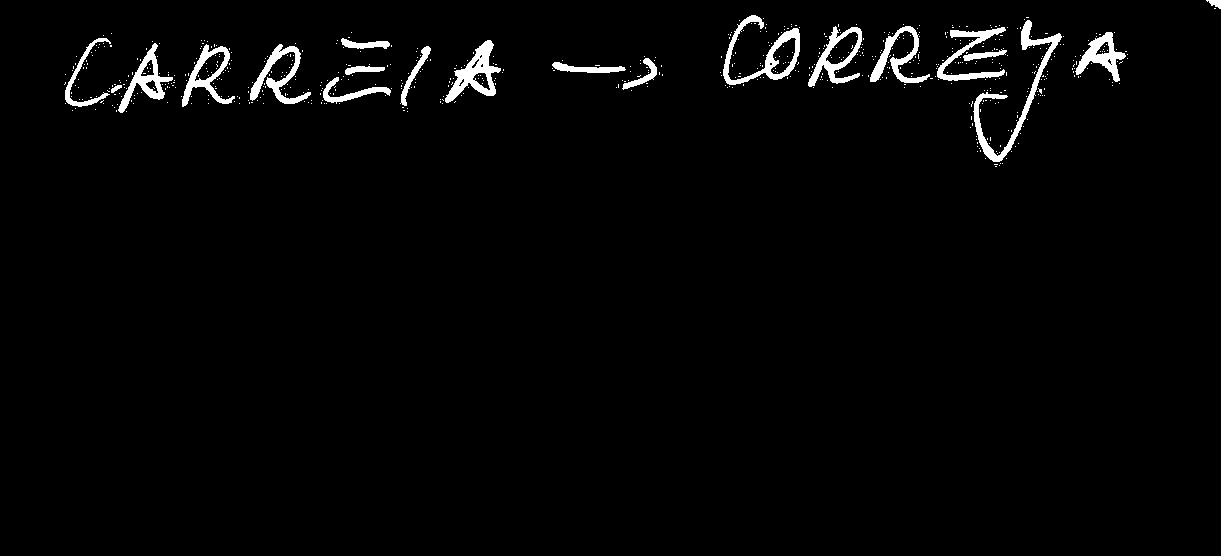 CARREIA → CORREYA